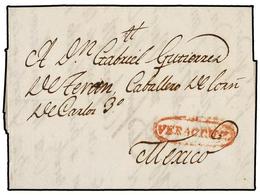 A D.n Gabriel Gutierrez
De Teran, Caballero De
De Carlos 3º
VERACRUZ
Mexico